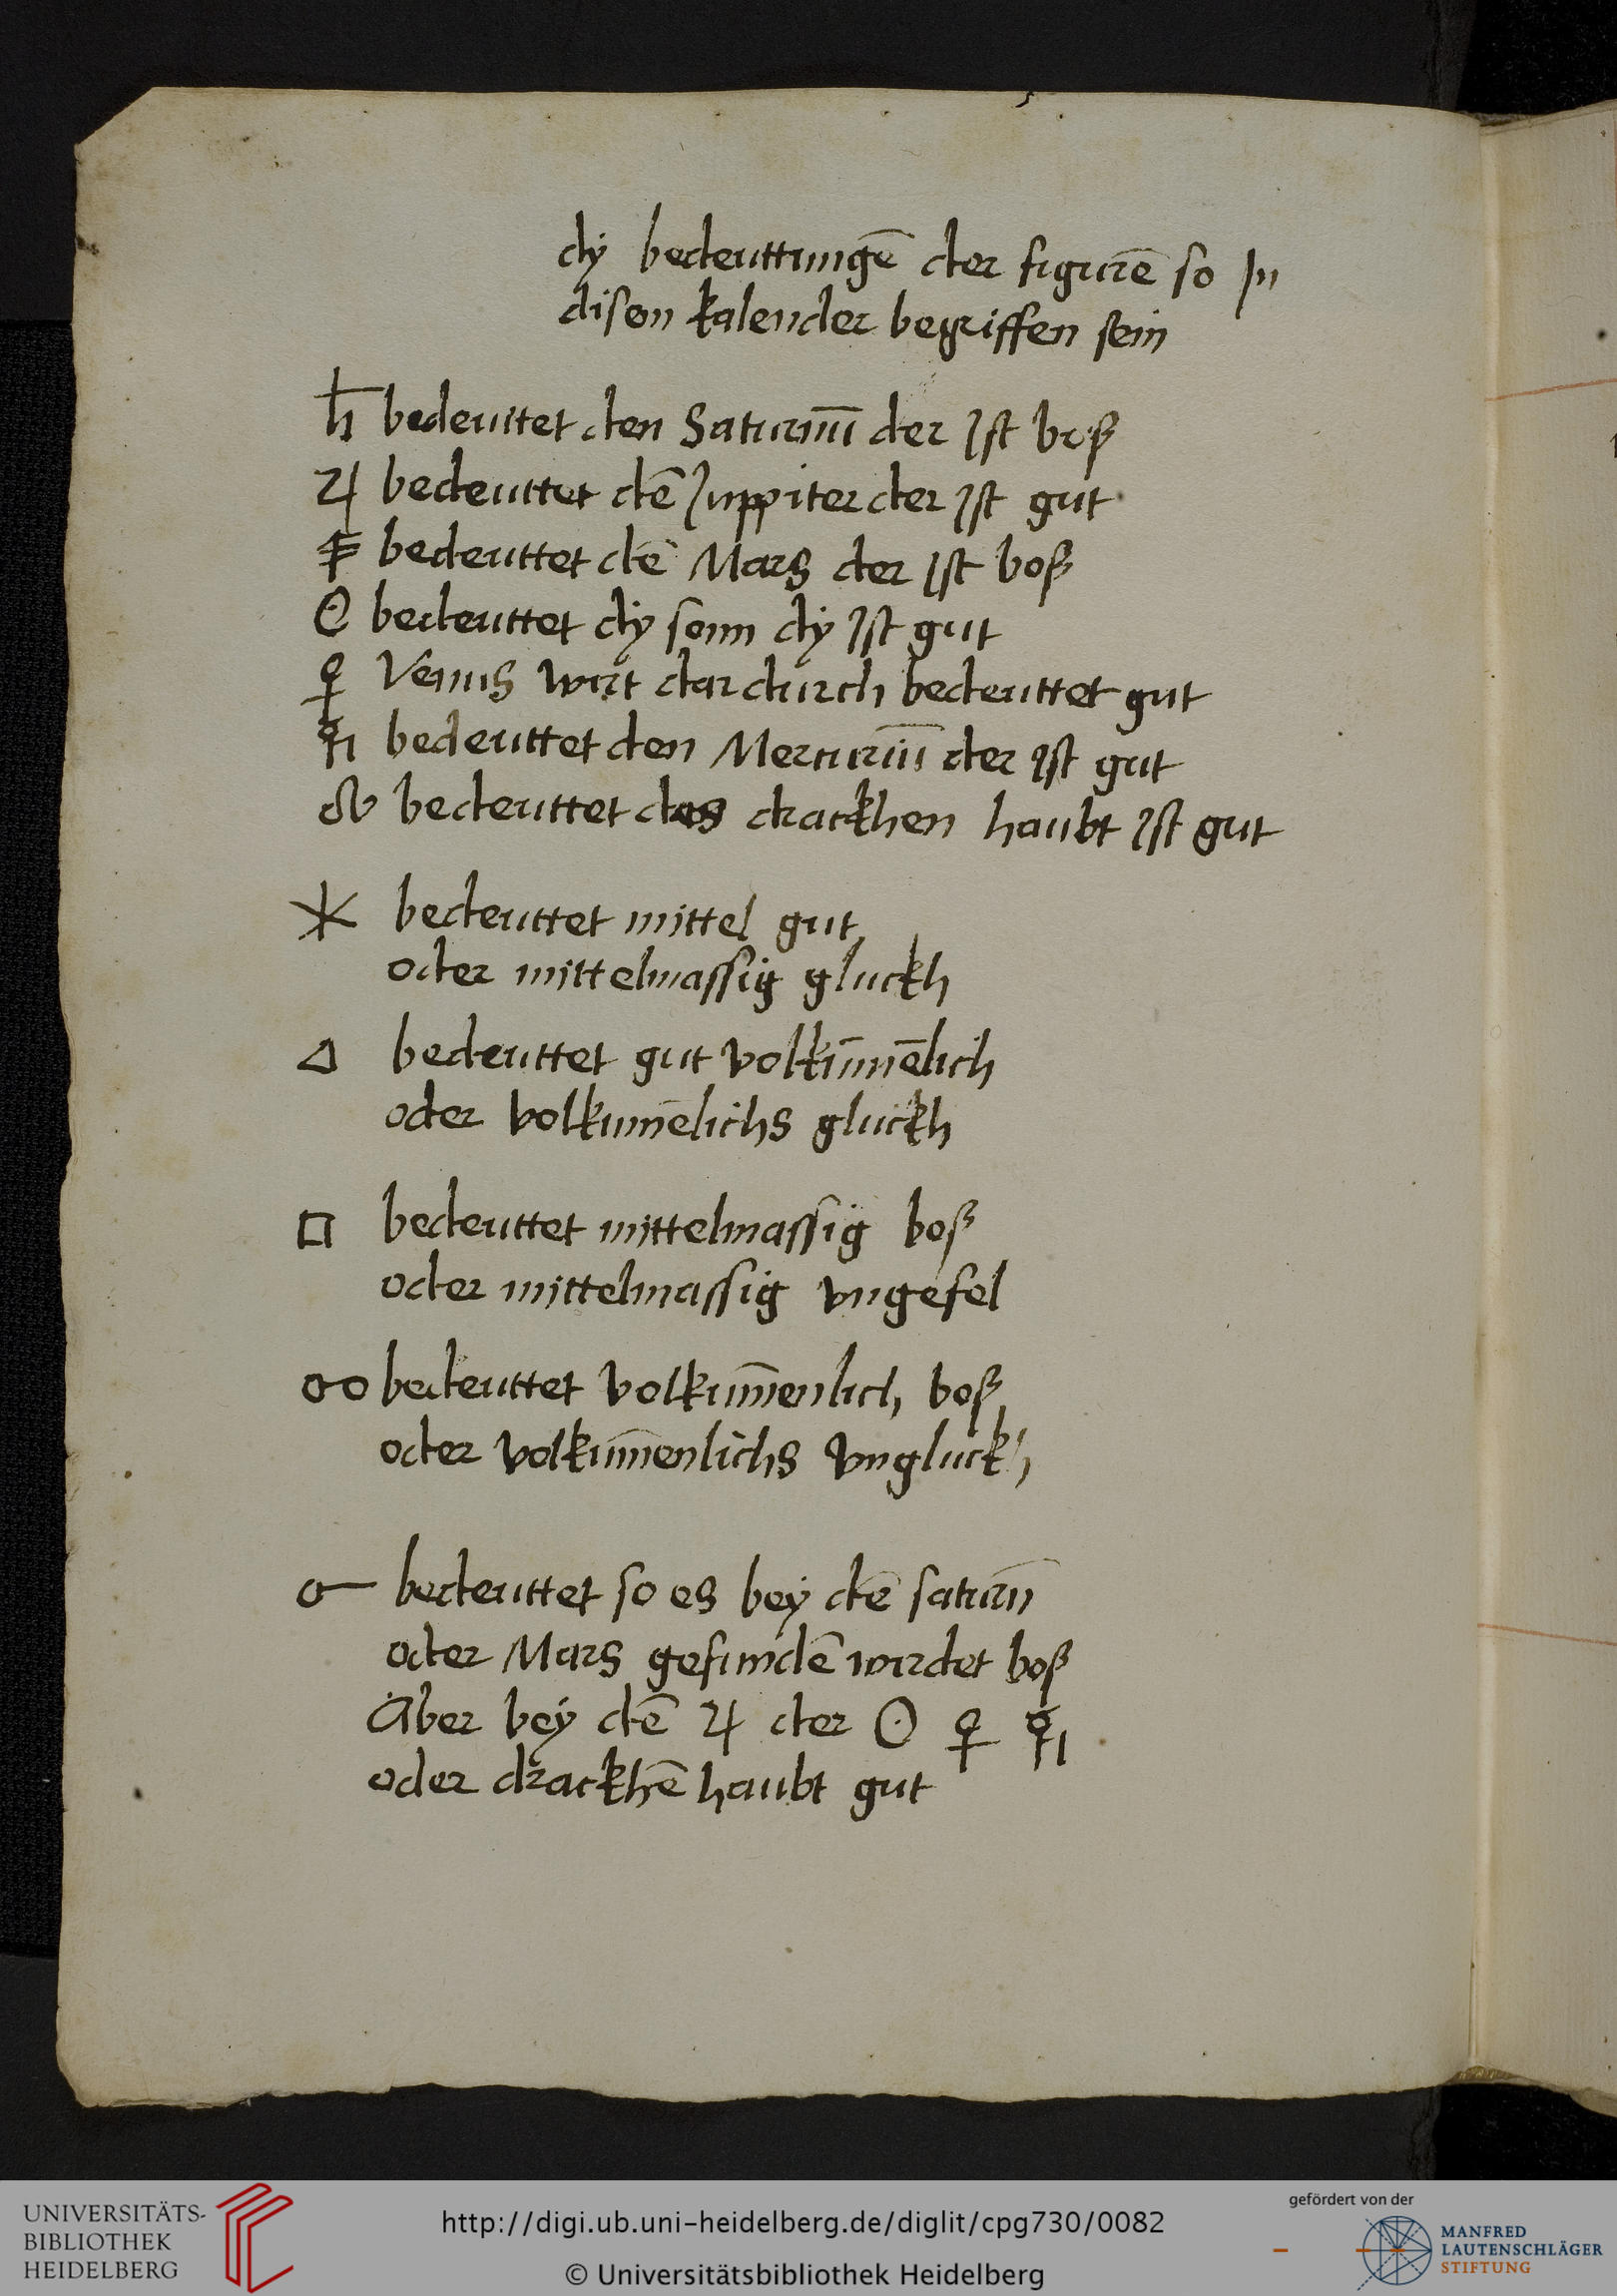 dÿ bedeuttungē der figurē so Jn
disen kalender begriffen sein
♄ bedeuttet den Saturnū der Jst boß
♃ bedeuttet dē Juppiter der Jst gut
bedeuttet dē Mars der Jst boß
☉ bedeuttet dÿ sonn dÿ Jst gut
♀ Venus wirt dardurch bedeuttet gut
☿ bedeuttet den Mercuriū der Jst gut
☊ bedeuttet des drackhen haubt Jst gut
⚹ bedeuttet mittel gut
oder mittelmassig gluckh
△ bedeuttet gut volkūmēlich
oder volkumēlichs gluckh
□ bedeuttet mittelmassig boß
oder mittelmassig vngefel
☍ bedeuttet volkūmenlich boß
oder volkūmenlichs vngluckh
☌ bedeuttet so es beÿ dē saturn̄
oder Mars gefundē wirdet boß
Aber beÿ dē ♃ der ☉ ♀ ☿
oder drackhē haubt gut
UNIVERSITÄTS-
BIBLIOTHEK
HEIDELBERG
http://digi.ub.uni-heidelberg.de/diglit/cpg730/0082
© Universitätsbibliothek Heidelberg
gefördert von der
MANFRED
LAUTENSCHLÄGER
STIFTUNG